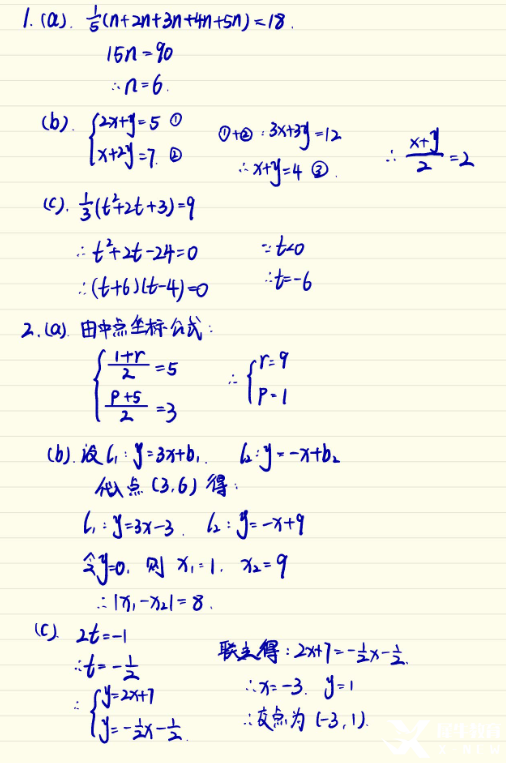 1.(a). 1/5(n+2n+3n+4n+5n)=18.
15n=90
∴n=6.
(b). {2x+y=5 ①
x+2y=7. ②
①+②:3x+3y=12
∴x+y=4 ③.
∴ (x+y)/2=2
(c). 1/3(t²+2t+3)=9
∴t²+2t-24=0
∴(t+6)(t-4)=0
∵t<0
∴t=-6
2.(a). 由中点坐标公式:
{(1+r)/2=5
(p+5)/2=3
∴{r=9
p=1
(b). 设l₁:y=3x+b₁. l₂:y=-x+b₂
代入点(3,6)得:
l₁:y=3x-3. l₂:y=-x+9
令y=0, 则 x₁=1, x₂=9
∴|x₁-x₂|=8.
(c). 2t=-1
∴t=-1/2
∴{y=2x+7
y=-1/2x-1/2.
联立得:2x+7=-1/2x-1/2.
∴x=-3. y=1
∴交点为(-3,1).